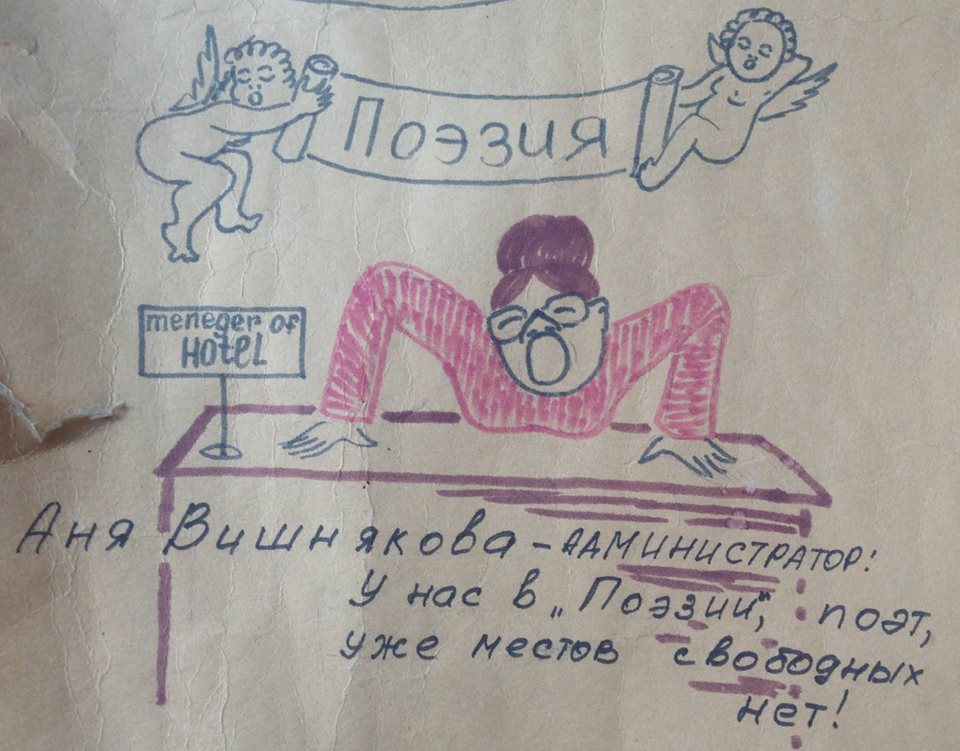 Поэзия
meneger of
HOtEL
Аня Вишнякова – АДМИНИСТРАТОР:
У нас в „Поэзии“, поэт,
уже местов свободных
нет!